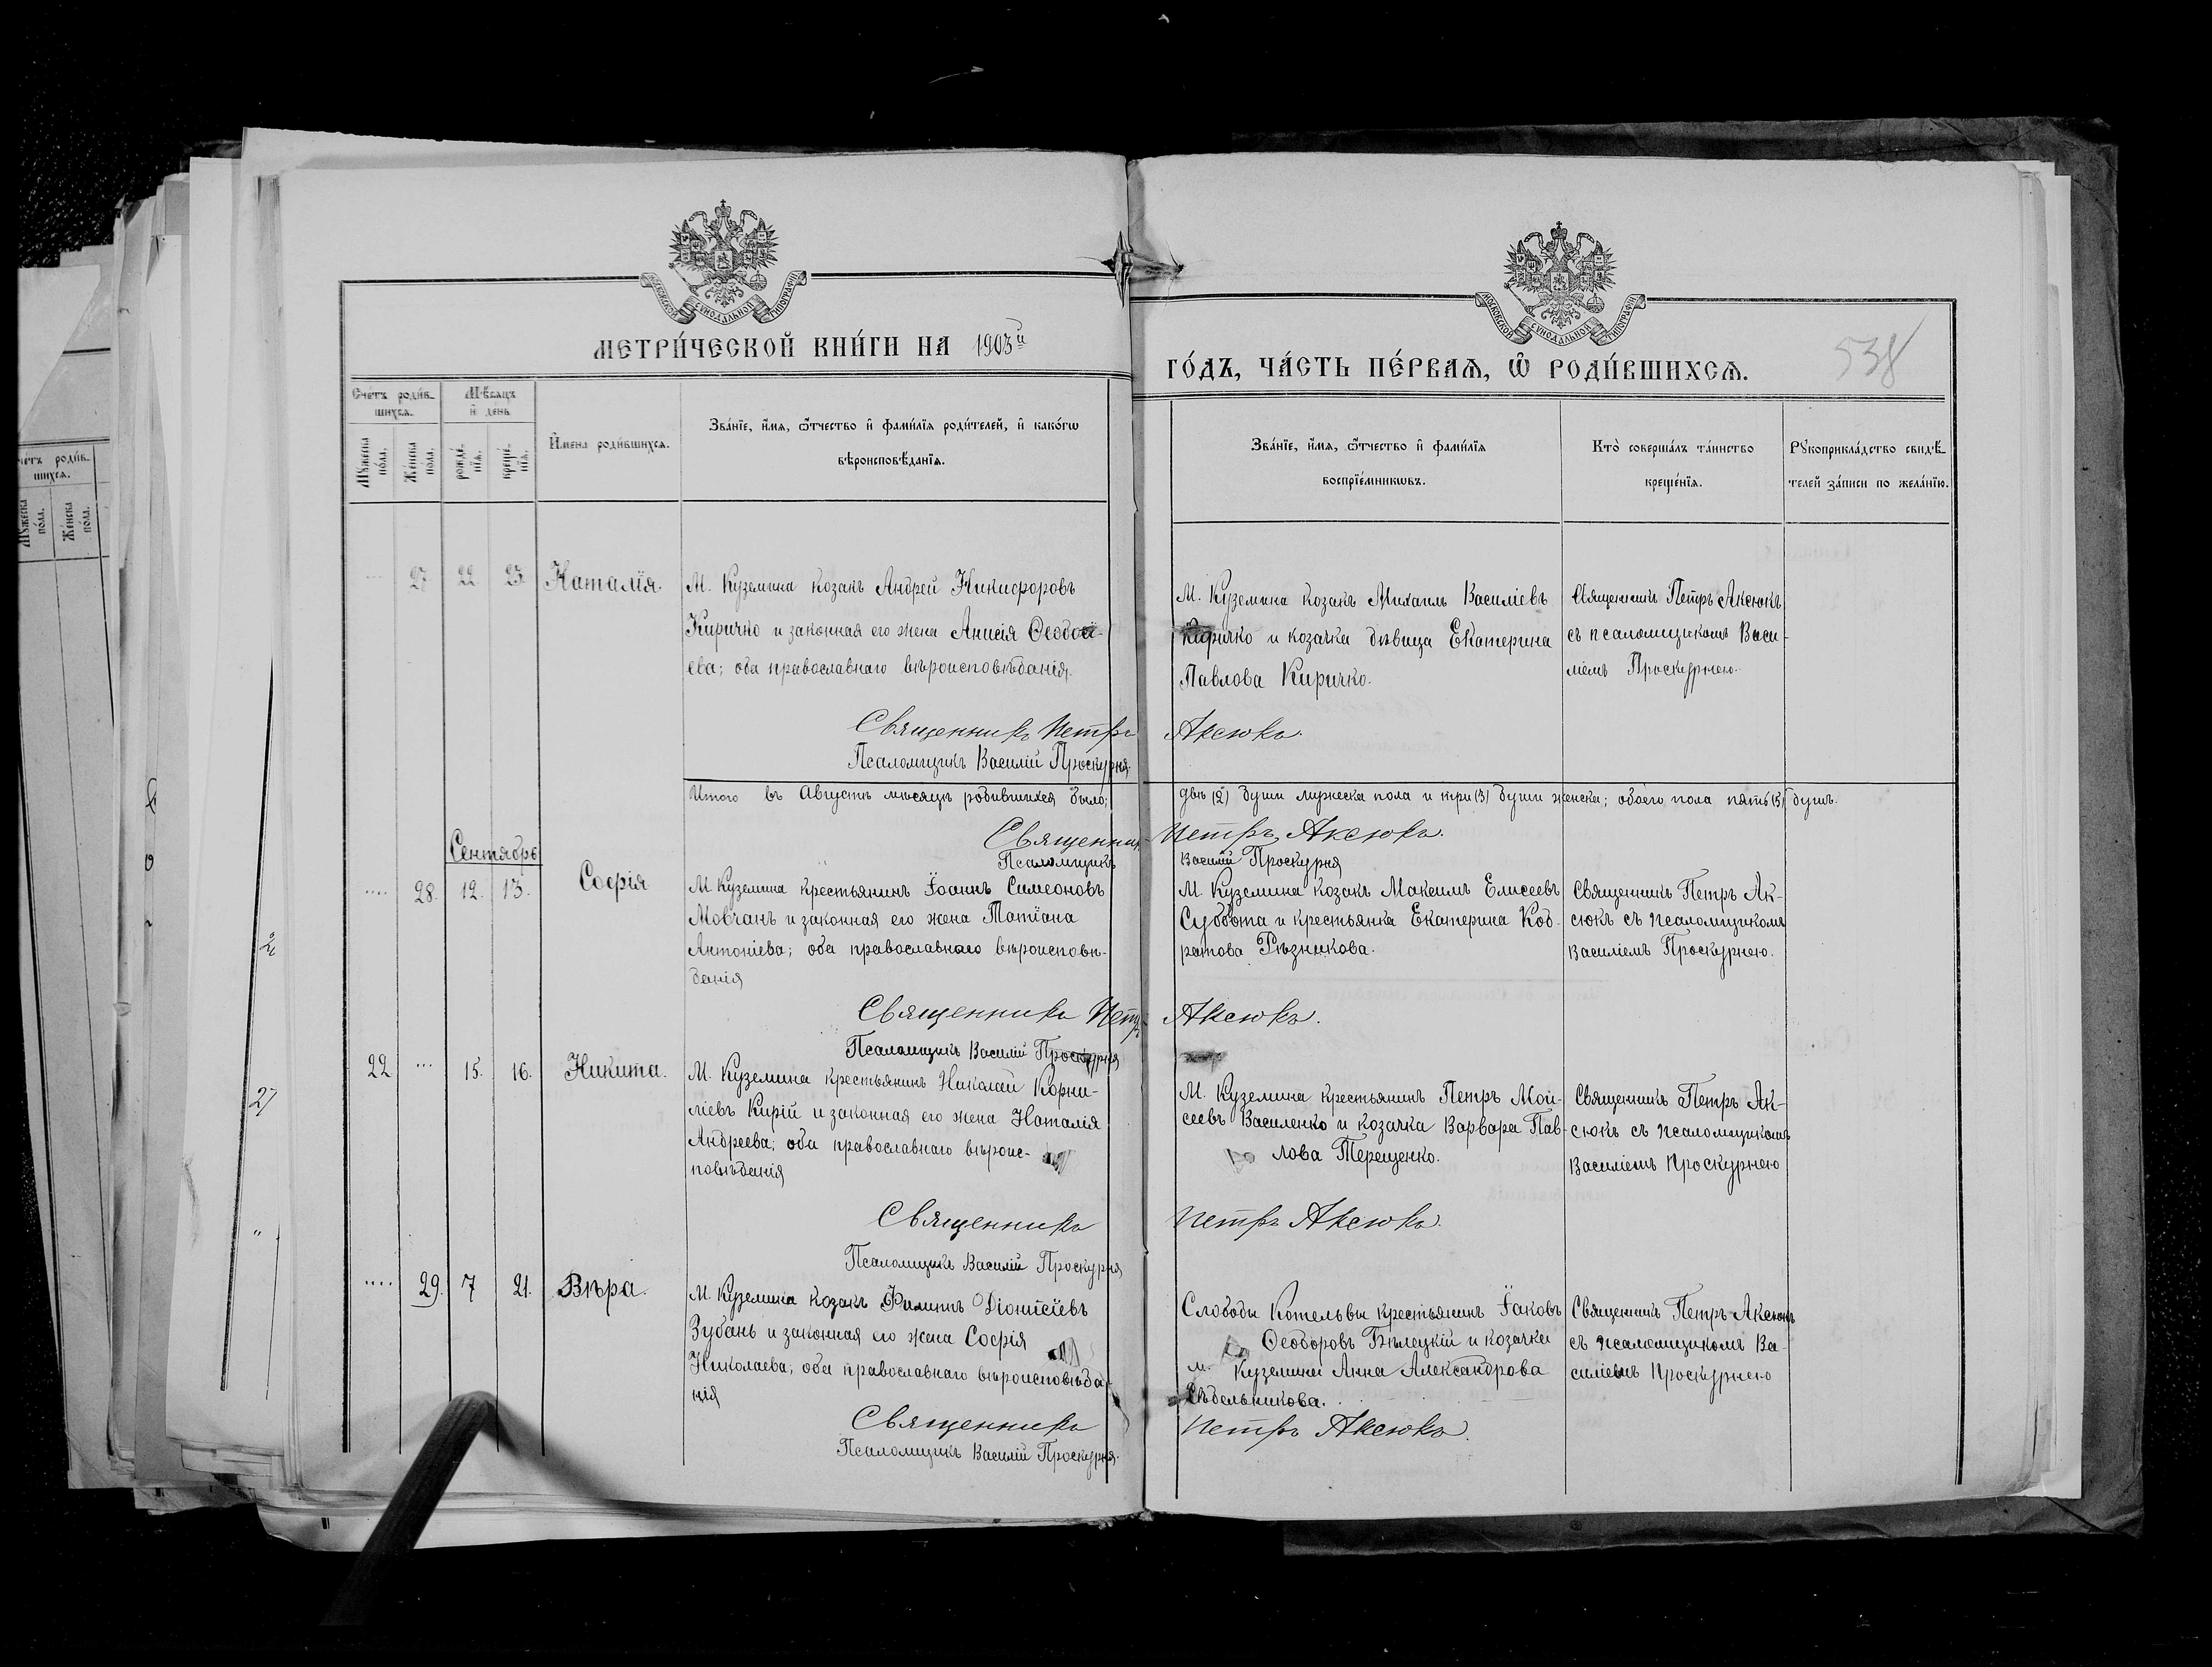 МОСКОВСКОЙ СѴНОДАЛЬНОЙ ТИПОГРАФІИ
МОСКОВСКОЙ СѴНОДАЛЬНОЙ ТИПОГРАФІИ
МЕТРИ́ЧЕСКОЙ КНИ́ГИ НА 1903й
ГО́ДЪ, ЧА́СТЬ ПЕ́РВАѦ, Ѽ РОДИ́ВШИХСѦ.
538
Сче́тъ роди́в-
шихсѧ.
Мѣсѧцъ
и҆ де́нь
Мꙋ́жеска
по́ла.
Же́нска
пола.
рожде́-
нїѧ.
креще́-
нїѧ.
И҆мена роди́вшихсѧ.
Зва́нїе, и҆́мѧ, ѻ҆́тчество и҆ фами́лїѧ роди́телей, и҆ како́гѡ
вѣроисповѣ́данїѧ.
Зва́нїе, и҆́мѧ, ѻ҆́тчество и҆ фами́лїѧ
воспрїе́мникѡвъ.
Кто̀ соверша́лъ та́инство
креще́нїѧ.
Рꙋкоприкла́дство свидѣ́-
телей за́писи по жела́нїю.
27 22 23 Наталія.
М. Куземина козакъ Андрей Никифоровъ
Киричко и законная его жена Анисія Ѳеодосі-
ева; оба православнаго вѣроисповѣданія.
М. Куземина козакъ Михаилъ Василіевъ
Киричко и козачка дѣвица Екатерина
Павлова Киричко.
Священникъ Петръ Аксюкъ
съ псаломщикомъ Васи-
ліемъ Проскурнею.
Священникъ Петръ Аксюкъ.
Псаломщикъ Василій Проскурня.
Итого въ Августѣ мѣсяцѣ родившихся было; двѣ (2) души мужеска пола и три (3) души женска; обоего пола пять (5) душъ.
Священникъ Петръ Аксюкъ.
Псаломщикъ Василій Проскурня
Сентябрь
28. 12. 13. Софія
М. Куземина крестьянинъ Іоаннъ Симеоновъ
Мовчанъ и законная его жена Татіана
Антоніева; оба православнаго вѣроисповѣ-
данія
М. Куземина козакъ Максимъ Елисеевъ
Суббота и крестьянка Екатерина Код-
ратова Рѣзникова.
Священникъ Петръ Ак-
сюкъ съ псаломщикомъ
Василіемъ Проскурнею.
Священникъ Петръ Аксюкъ.
Псаломщикъ Василій Проскурня
22 15. 16. Никита.
М. Куземина крестьянинъ Николай Корни-
ліевъ Кирій и законная его жена Наталія
Андреева; оба православнаго вѣроис-
повѣданія
М. Куземина крестьянинъ Петръ Мои-
сеевъ Василенко и козачка Варвара Пав-
лова Терещенко.
Священникъ Петръ Ак-
сюкъ съ псаломщикомъ
Василіемъ Проскурнею
Священникъ Петръ Аксюкъ.
Псаломщикъ Василій Проскурня
29. 7 21. Вѣра.
М. Куземина козакъ Филиппъ Діонисіевъ
Зубань и законная его жена Софія
Николаева; оба православнаго вѣроисповѣда-
нія
Слободы Котельвы крестьянинъ Іаковъ
Ѳеодоровъ Бѣлецкій и козачка
м. Куземина Анна Александрова
Сѣдельникова.
Священникъ Петръ Аксюкъ
съ псаломщикомъ Ва-
силіемъ Проскурнею
Священникъ Петръ Аксюкъ.
Псаломщикъ Василій Проскурня.